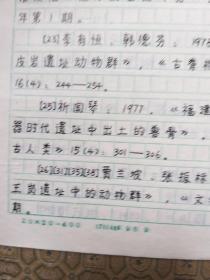 年第1期。
[23]李有恒,韩德芬:197
皮岩遗址动物群》,《古脊椎
16(4):244—254。
[25]祈国琴:1977,《福建
器时代遗址中出土的兽骨》,
古人类》15(4):301—306。
[26][31][35][38]贾兰坡、张振标
王岗遗址中的动物群》,《文
期。
20×20=400